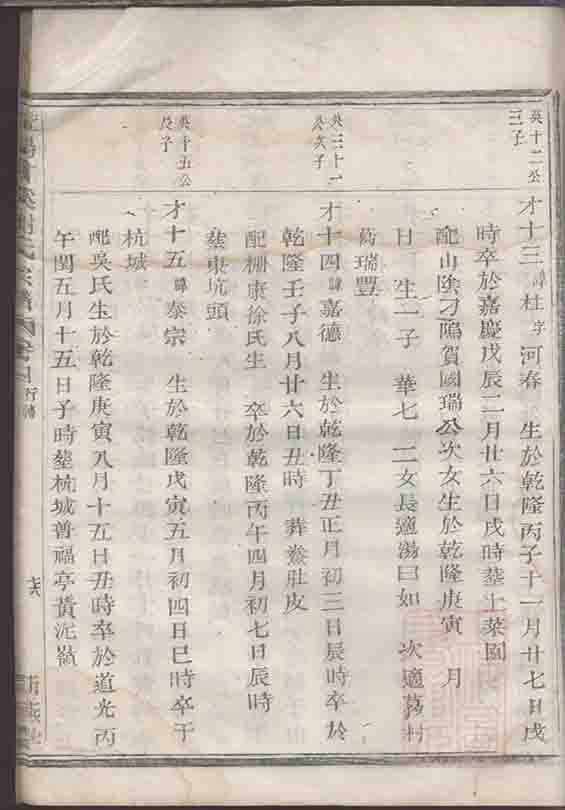 英十二公
三子
才十三諱桂字河春 生於乾隆丙子十一月廿七日戌
時卒於嘉慶戊辰二月廿六日戌時葬上菜園
配山陰刁隝賀國瑞公次女生於乾隆庚寅 月
日 生一子 華七 二女長適湯曰如 次適葛村
葛瑞豐
英三十一
公次子
才十四諱嘉德 生於乾隆丁丑正月初三日辰時卒於
乾隆壬子八月廿六日丑時 葬 肚皮
配柵康徐氏生 卒於乾隆丙午四月初七日辰時
葬東坑頭
英十五公
長子
才十五諱泰宗 生於乾隆戊寅五月初四日巳時卒于
杭城
配吳氏生於乾隆庚寅八月十五日丑時卒於道光丙
午閏五月十五日子時葬杭城普福亭黃泥嶺
氏宗譜 行傳